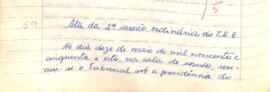 5
59
Ata da 2ª sessão ordinária do T.R.E.
No dia doze de maio de mil novecento e
cinquenta e oito, na sala de sessões, reu
niu-se o Tribunal sob a presidência do